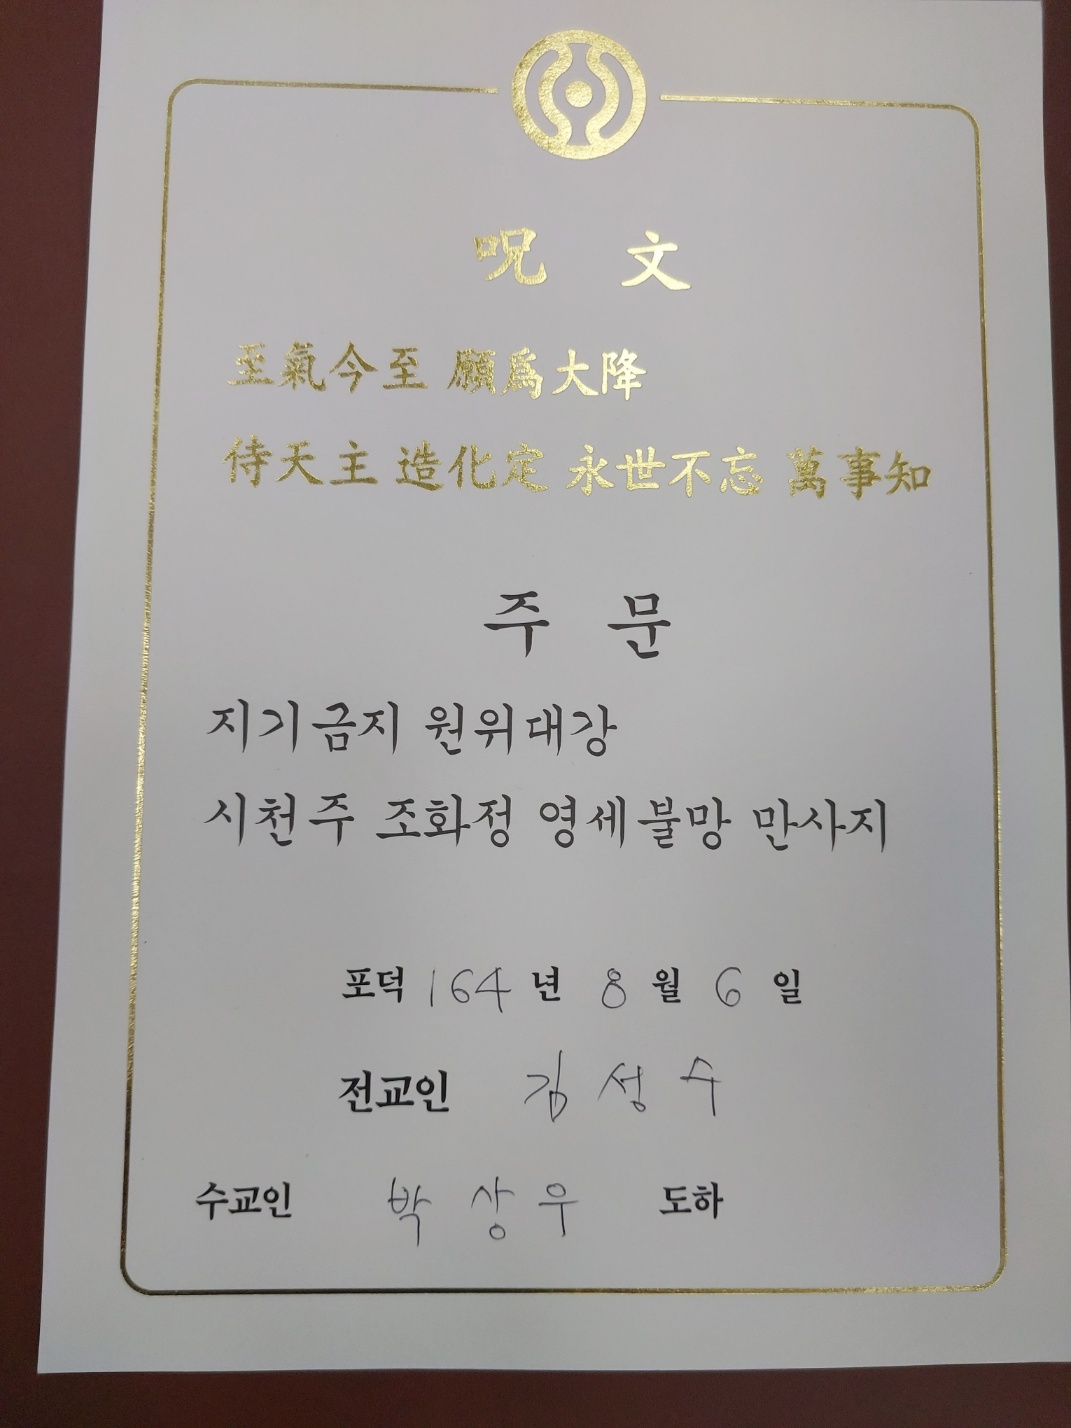 呪文
至氣今至 願爲大降
侍天主 造化定 永世不忘 萬事知
주문
지기금지 원위대강
시천주 조화정 영세불망 만사지
포덕 164년 8월 6일
전교인 김성수
수교인 박상우 도하